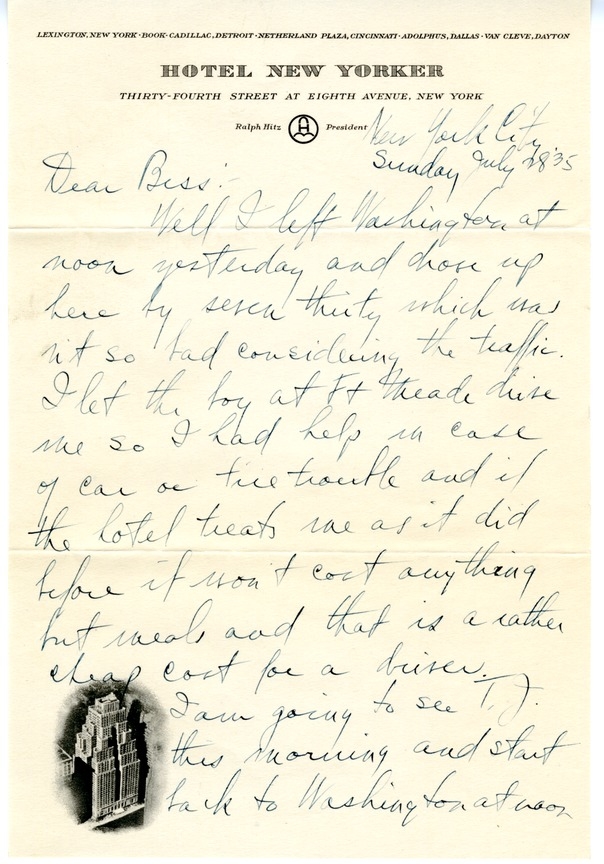 LEXINGTON, NEW YORK · BOOK-CADILLAC, DETROIT · NETHERLAND PLAZA, CINCINNATI · ADOLPHUS, DALLAS · VAN CLEVE, DAYTON
HOTEL NEW YORKER
THIRTY-FOURTH STREET AT EIGHTH AVENUE, NEW YORK
Ralph Hitz President
New York City,
Sunday July 28 '35
Dear Bess:-
Well I left Washington at
noon yesterday and drove up
here by seven thirty which was
n't so bad considering the traffic.
I let the boy at Ft Meade drive
me so I had help in case
of car or tire trouble and if
the hotel treats me as it did
before it won't cost anything
but meals and that is a rather
cheap cost for a driver.
I am going to see T.J.
this morning and start
back to Washington at noon